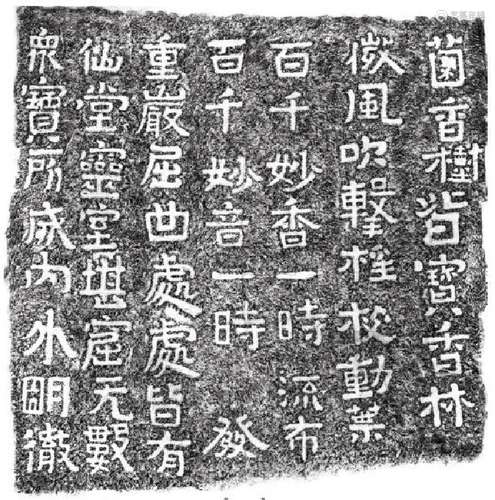 菌香樹皆寶香林
微風吹擊枝動葉
百千妙香一時流布
百千妙音一時發
重巖屈曲處處皆有
仙堂靈室堪窟无數
衆寶所成內外明徹